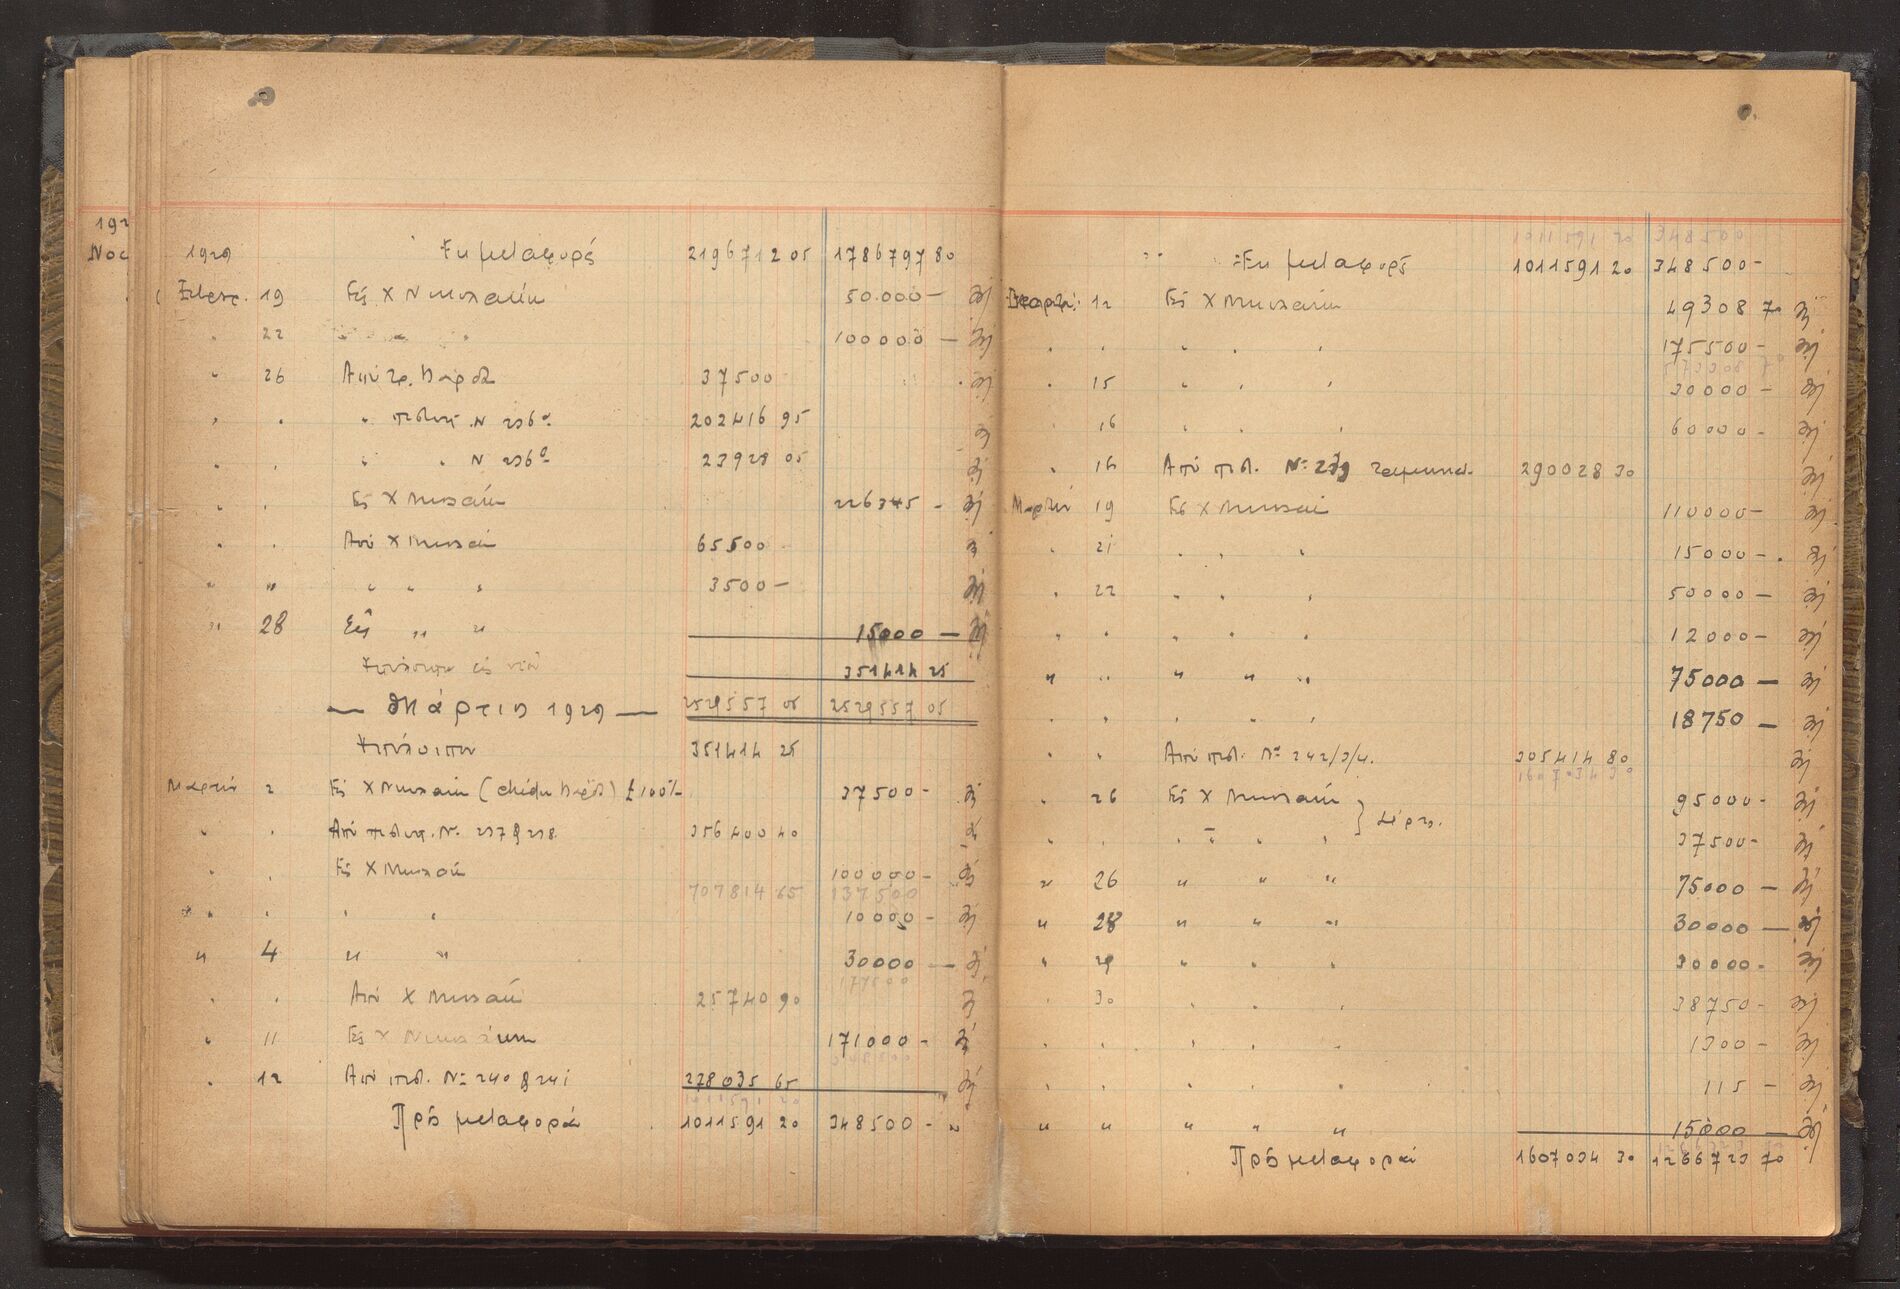 192
Νοε
1929 Ἐκ μεταφορᾶς 2196712 05 1786797 80
19 Εἰς Χ Νικολαΐδη 50.000 —
" 22 100000 —
" 26 Ἀπὸ 37500
" " " N 236α 202416 95
" " " " N 236β 23928 05
" " Εἰς Χ Νικολαΐδη 226345 —
" " Ἀπὸ Χ Νικολαΐδη 65500
" " " " " 3500 —
" 28 Εἰς " " 15000 —
Ὑπόλοιπον εἰς νέον 351414 25
— Μάρτιος 1929 — 2529557 05 2529557 05
Ὑπόλοιπον 351414 25
Μαρτίου 2 Εἰς Χ Νικολαΐδη £100 37500 —
" " Ἀπὸ πιστωτ. Νο 237 & 238 356400 40
" " Εἰς Χ Νικολαΐδη 100000 —
707814 65 137500
" " " " 10000 —
" 4 " " 30000 —
177500
" " Ἀπὸ Χ Νικολαΐδη 25740 90
" 11 Εἰς Χ Νικολαΐδη 171000 —
348500
" 12 Ἀπὸ πιστ. Νο 240 & 241 278035 65
1011591 20
Πρὸς μεταφοράν 1011591 20 348500 —
1011591 20 348500
Ἐκ μεταφορᾶς 1011591 20 348500 —
12 Εἰς Χ Νικολαΐδη 49308 70
" " " " " 175500 —
573308 70
" 15 " " " 30000 —
" 16 " " " 60000 —
" 16 Ἀπὸ πιστ. Νο 239 290028 30
Μαρτίου 19 Εἰς Χ Νικολαΐδη 110000 —
" 21 " " " 15000 —
" 22 " " " 50000 —
" " " " " 12000 —
" " " " " 75000 —
" " " " " 18750 —
" " Ἀπὸ πιστ. Νο 242/3/4. 305414 80
1607034 30
" 26 Εἰς Χ Νικολαΐδη 95000 —
" " " " " 37500 —
" 26 " " " 75000 —
" 28 " " " 30000 —
" 29 " " " 30000 —
" 30 " " " 38750 —
" " " " " 1300 —
" " " " " 115 —
" " " " " 15000 —
Πρὸς μεταφοράν 1607034 30 1266723 70